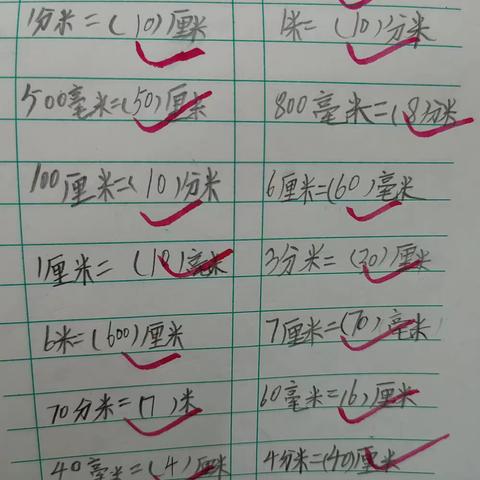 1分米=(10)厘米 1米=(10)分米
500毫米=(50)厘米 800毫米=(8)分米
100厘米=(10)分米 6厘米=(60)毫米
1厘米=(10)毫米 3分米=(30)厘米
6米=(600)厘米 7厘米=(70)毫米
70分米=(7)米 60毫米=(6)厘米
40毫米=(4)厘米 4分米=(40)厘米